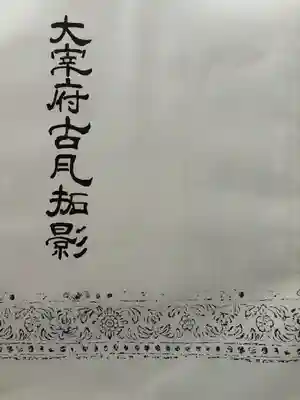 大宰府古凡拓影